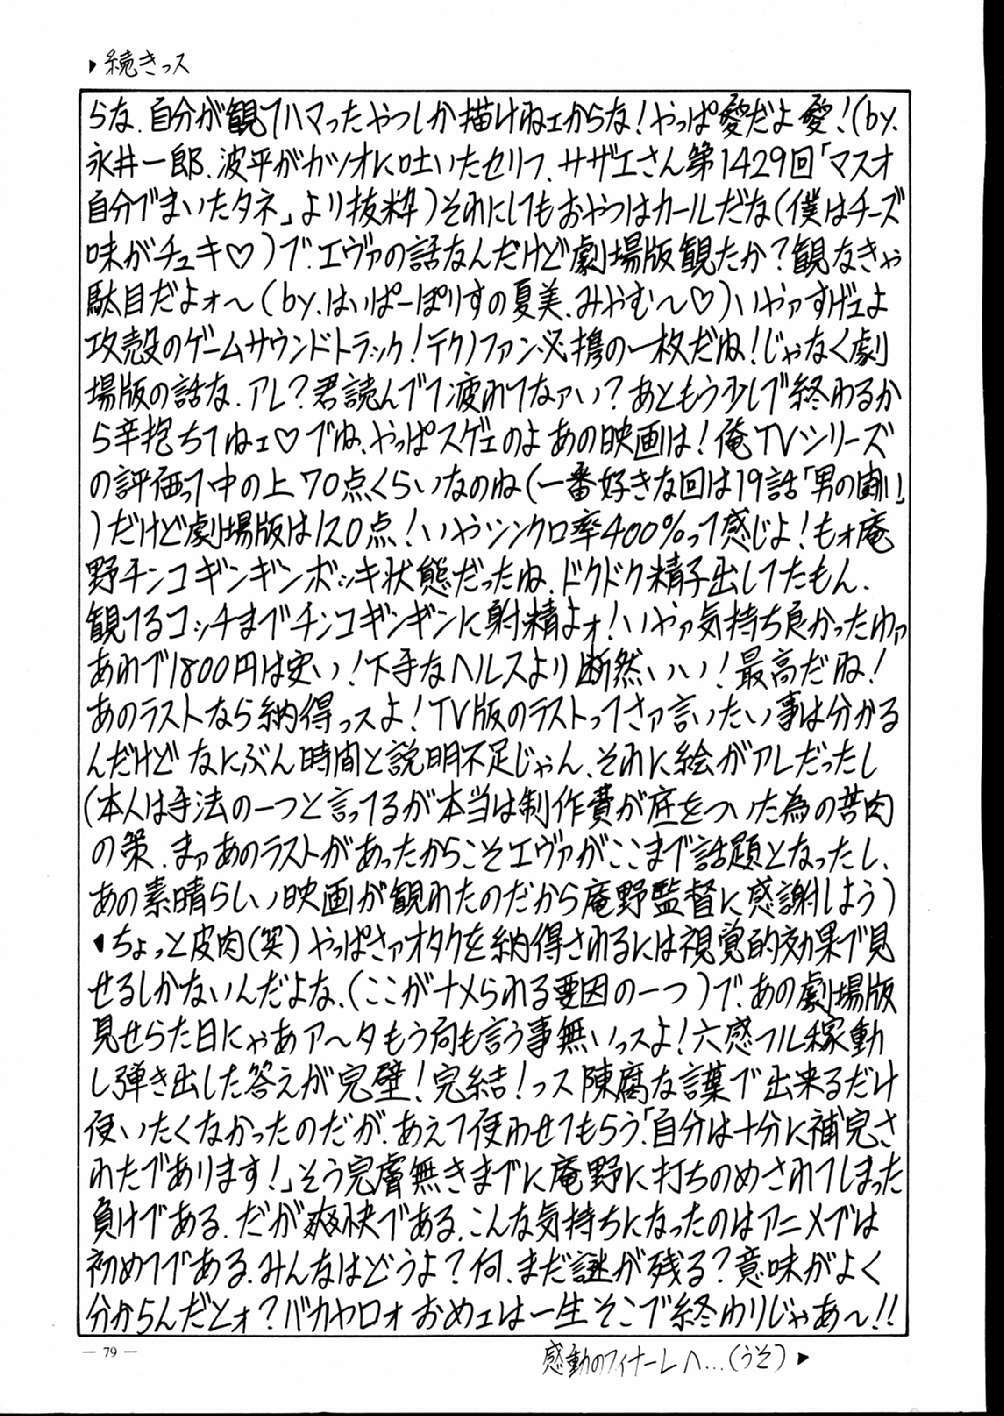 ▶続きっス
らな、自分が観てハマったやつしか描けねェからな！やっぱ愛だよ愛！(by.
永井一郎、波平がカツオに吐いたセリフ、サザエさん第1429回「マスオ
自分でまいたタネ」より抜粋)それにしてもおやつはカールだな(僕はチーズ
味がチュキ♡)で、エヴァの話なんだけど劇場版観たか？観なきゃ
駄目だよォ～(by.はいぱーぽりすの夏美、みやむ～♡)いやァすげェよ
攻殻のゲームサウンドトラック！テクノファン必携の一枚だね！じゃなく劇
場版の話な、アレ？君読んでて疲れてなァい？あともう少しで終わるか
ら辛抱ちてねェ♡でね、やっぱスゲェのよあの映画は！俺TVシリーズ
の評価って中の上70点くらいなのね(一番好きな回は19話「男の闘い」
)だけど劇場版は120点！いやシンクロ率400%って感じよ！もォ庵
野チンコギンギンボッキ状態だったね、ドクドク精子出してたもん、
観てるコッチまでチンコギンギンに射精よォ！いやァ気持ち良かったわァ
あれで1800円は安い！下手なヘルスより断然いい！最高だね！
あのラストなら納得っスよ！TV版のラストってさァ言いたい事は分かる
んだけどなにぶん時間と説明不足じゃん、それに絵がアレだったし
(本人は手法の一つと言ってるが本当は制作費が底をついた為の苦肉
の策、まァあのラストがあったからこそエヴァがここまで話題となったし、
あの素晴らしい映画が観れたのだから庵野監督に感謝しよう)
♥ちょっと皮肉(笑)やっぱさァオタクを納得されるには視覚的効果で見
せるしかないんだよな、(ここがナメられる要因の一つ)で、あの劇場版
見せらた日にゃあア～タもう何も言う事無いっスよ！六感フル稼動
し弾き出した答えが完璧！完結！っス陳腐な言葉で出来るだけ
使いたくなかったのだが、あえて使わせてもらう、「自分は十分に補完さ
れたであります！」そう完膚無きまでに庵野に打ちのめされてしまった
負けである、だが爽快である、こんな気持ちになったのはアニメでは
初めてである、みんなはどうよ？何、まだ謎が残る？意味がよく
分からんだとォ？バカヤロォおめェは一生そこで終わりじゃあ～!!
— 79 —
感動のフィナーレへ…(うそ)▶